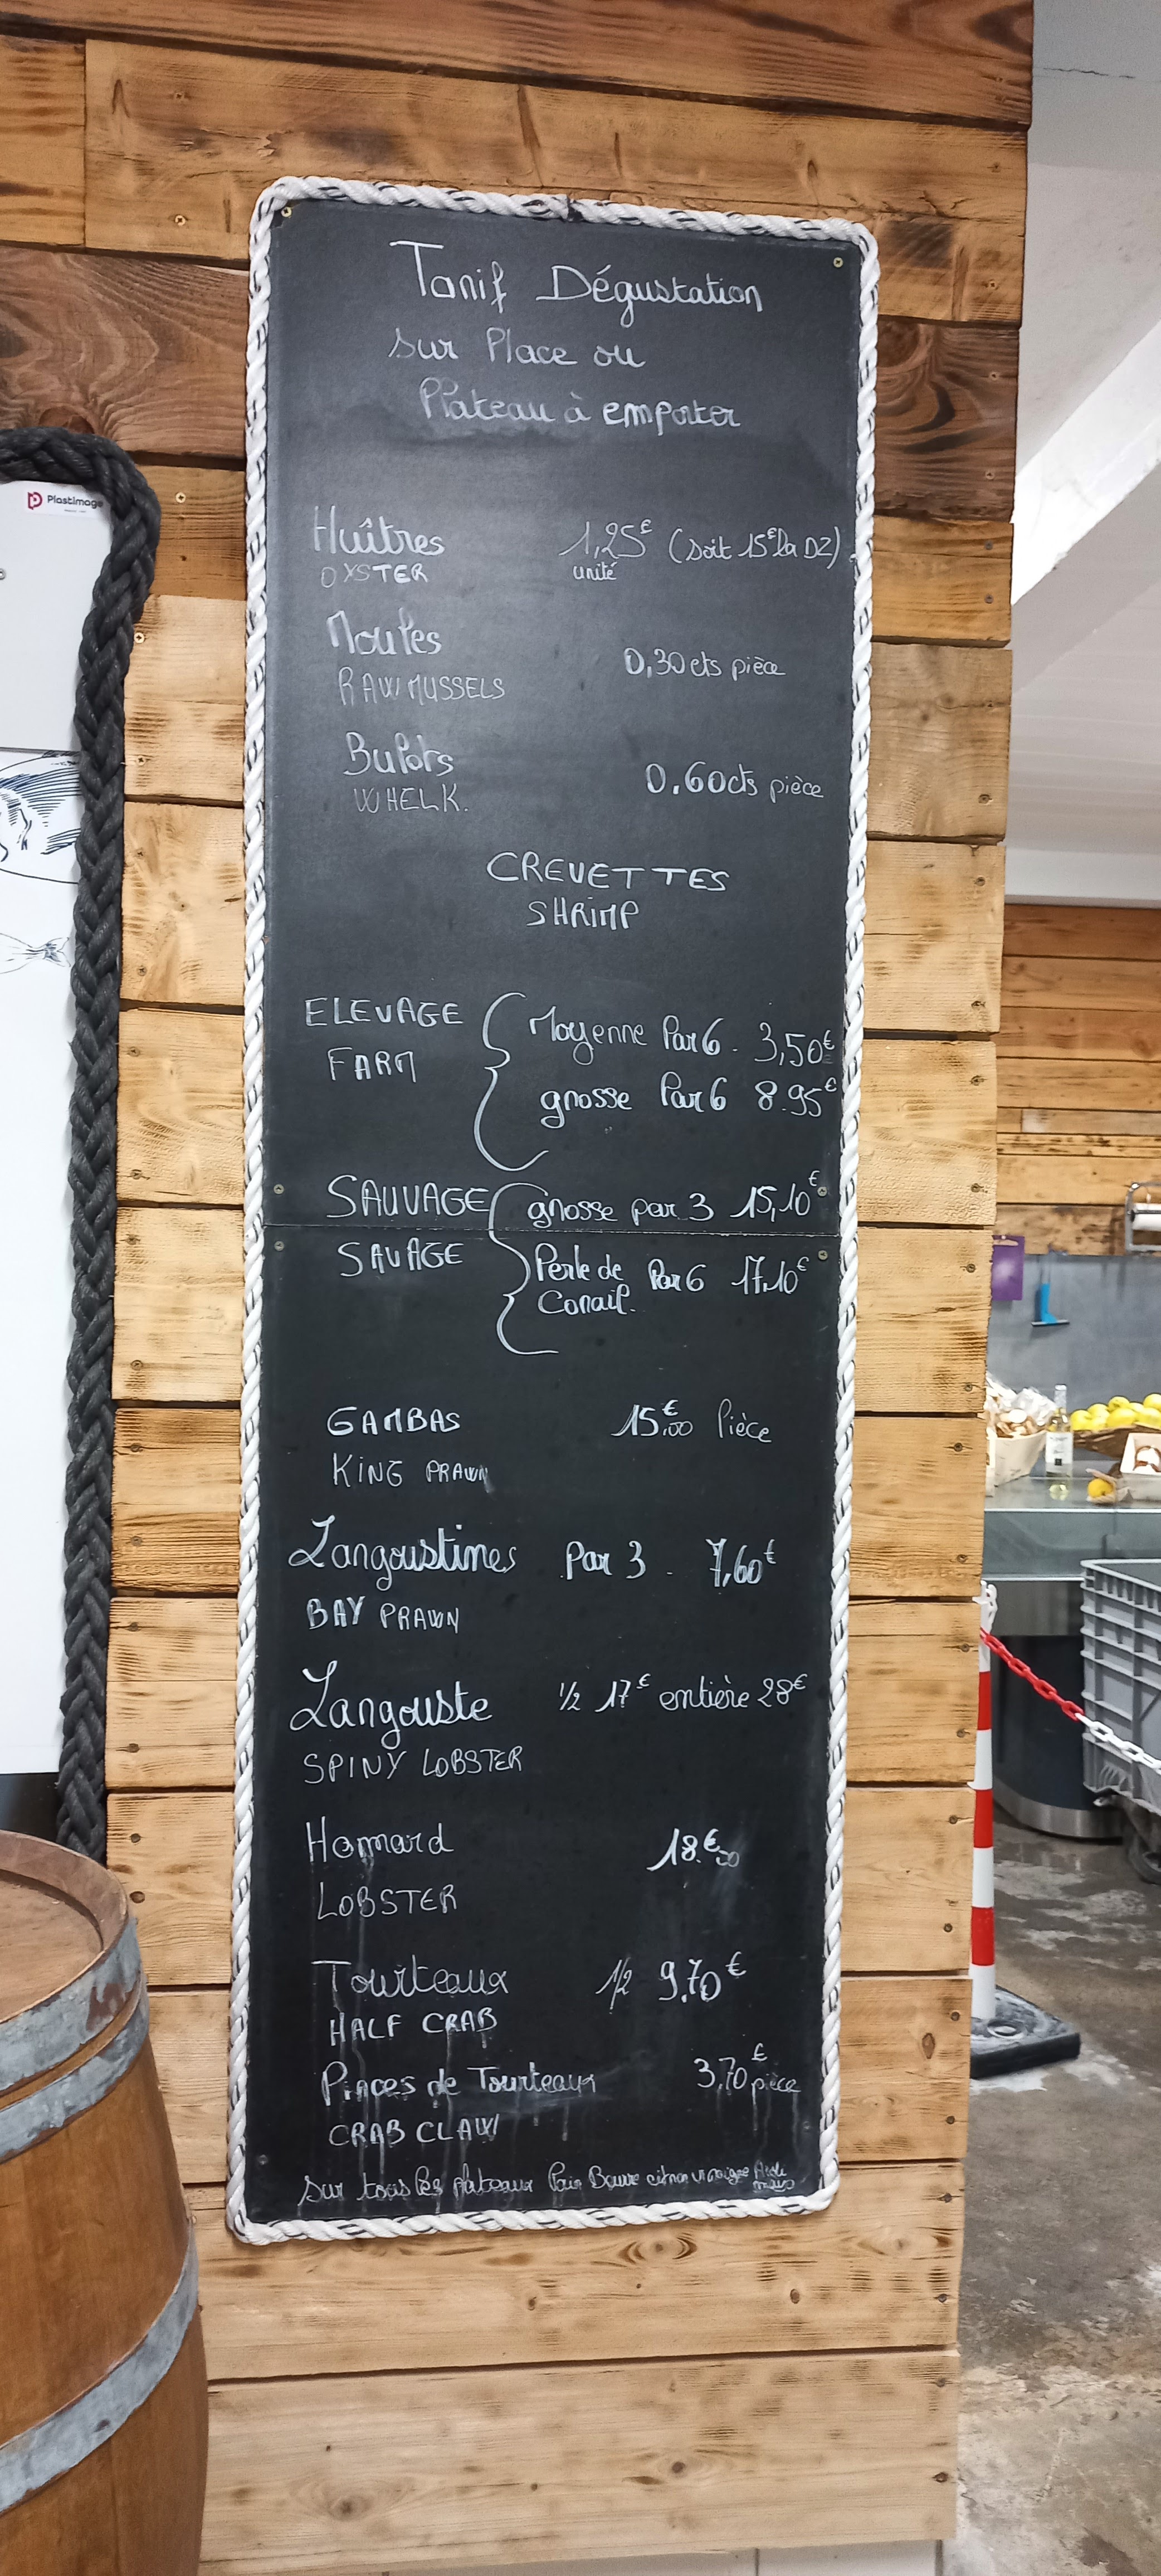 Plastimo
Tarif Dégustation
sur Place ou
Plateau à emporter
Huîtres 1,25€ (soit 15€ la DZ)
OYSTER unité
Moules
0,30 cts pièce
RAW MUSSELS
Bulots
0.60cts pièce
WHELK.
CREVETTES
SHRIMP
ELEVAGE Moyenne Par 6 . 3,50€
FARM
grosse Par 6 8.95€
SAUVAGE grosse par 3 15,10€
SAVAGE Perle de Par 6 17,10€
Corail.
GAMBAS 15€,00 Pièce
KING PRAWN
Langoustines Par 3 . 7,60€
BAY PRAWN
Langouste 1/2 17€ entière 28€
SPINY LOBSTER
Homard 18.€50
LOBSTER
Tourteaux 1/2 9,70€
HALF CRAB
Pinces de Tourteaux 3,70€ pièce
CRAB CLAW
Sur tous les plateaux Pain Beurre citron vinaigre